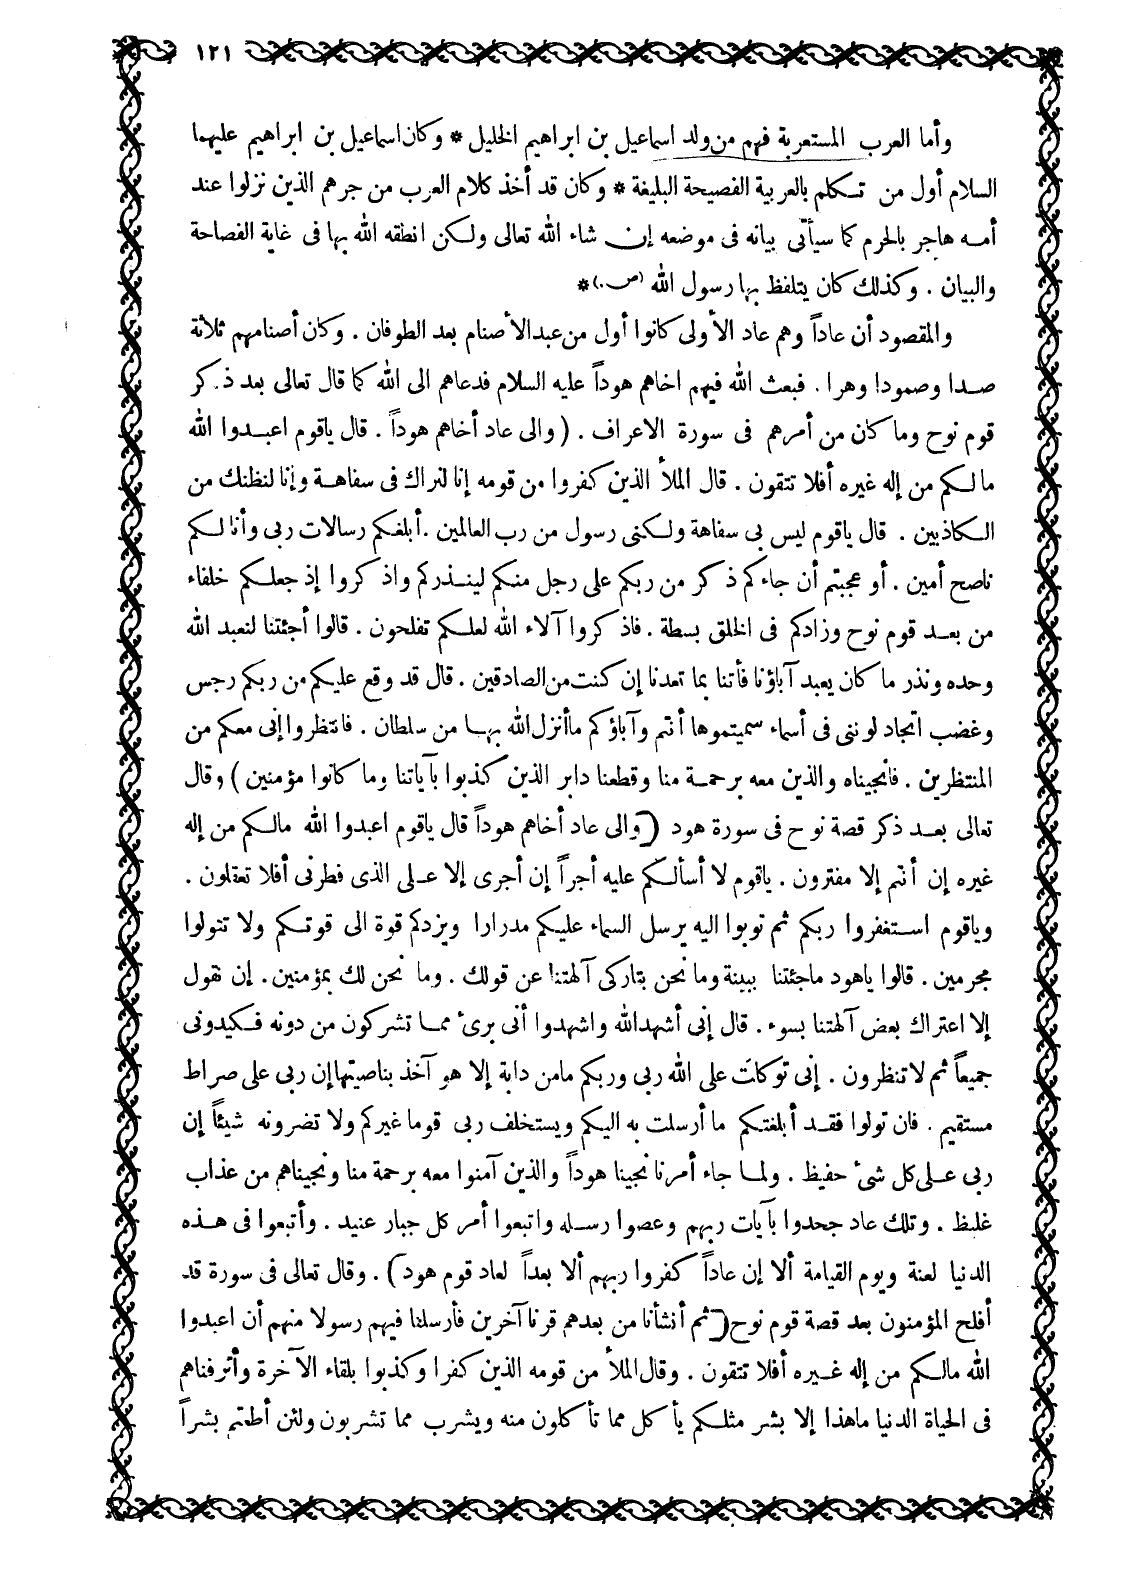 ١٢١
وأما العرب المستعربة فهم من ولد اسماعيل بن ابراهيم الخليل * وكان اسماعيل بن ابراهيم عليهما
السلام أول من تكلم بالعربية الفصيحة البليغة * وكان قد أخذ كلام العرب من جرهم الذين نزلوا عند
أمه هاجر بالحرم كما سيأتى بيانه فى موضعه إن شاء الله تعالى ولكن انطقه الله بها فى غاية الفصاحة
والبيان . وكذلك كان يتلفظ بها رسول الله (ص.)*
والمقصود أن عاداً وهم عاد الأولى كانوا أول من عبد الأصنام بعد الطوفان . وكان أصنامهم ثلاثة
صدا وصمودا وهرا . فبعث الله فيهم اخاهم هوداً عليه السلام فدعاهم الى الله كما قال تعالى بعد ذكر
قوم نوح وما كان من أمرهم فى سورة الاعراف . (والى عاد أخاهم هوداً . قال ياقوم اعبدوا الله
مالكم من إله غيره أفلا تتقون . قال الملأ الذين كفروا من قومه إنا لنراك فى سفاهة وإنا لنظنك من
الكاذبين . قال ياقوم ليس بى سفاهة ولكنى رسول من رب العالمين .أبلغكم رسالات ربى وأنا لكم
ناصح أمين . أو عجبتم أن جاءكم ذكر من ربكم على رجل منكم لينذركم واذكروا إذ جعلكم خلفاء
من بعد قوم نوح وزادكم فى الخلق بسطة . فاذكروا آلاء الله لعلكم تفلحون . قالوا أجئتنا لنعبد الله
وحده ونذر ما كان يعبد آباؤنا فأتنا بما تعدنا إن كنت من الصادقين . قال قد وقع عليكم من ربكم رجس
وغضب اتجادلوننى فى أسماء سميتموها أنتم وآباؤكم ما أنزل الله بها من سلطان . فانتظروا إنى معكم من
المنتظرين . فانجيناه والذين معه برحمة منا وقطعنا دابر الذين كذبوا بآياتنا وما كانوا مؤمنين ) وقال
تعالى بعد ذكر قصة نوح فى سورة هود (والى عاد أخاهم هوداً قال ياقوم اعبدوا الله مالكم من إله
غيره إن أنتم إلا مفترون . ياقوم لا أسألكم عليه أجراً إن أجرى إلا على الذى فطرنى أفلا تعقلون .
وياقوم استغفروا ربكم ثم توبوا اليه يرسل السماء عليكم مدرارا ويزدكم قوة الى قوتكم ولا تتولوا
مجرمين . قالوا ياهود ماجئتنا ببينة وما نحن بتاركى آلهتنا عن قولك . وما نحن لك بمؤمنين . إن نقول
إلا اعتراك بعض آلهتنا بسوء . قال إنى أشهد الله واشهدوا أنى برئ مما تشركون من دونه فكيدونى
جميعاً ثم لا تنظرون . إنى توكلت على الله ربى وربكم مامن دابة إلا هو آخذ بناصيتها إن ربى على صراط
مستقيم . فان تولوا فقد أبلغتكم ما أرسلت به اليكم ويستخلف ربى قوما غيركم ولا تضرونه شيئاً إن
ربى على كل شئ حفيظ . ولما جاء أمرنا نجينا هوداً والذين آمنوا معه برحمة منا ونجيناهم من عذاب
غليظ . وتلك عاد جحدوا بآيات ربهم وعصوا رسله واتبعوا أمر كل جبار عنيد . وأتبعوا فى هذه
الدنيا لعنة ويوم القيامة ألا إن عاداً كفروا ربهم ألا بعداً لعاد قوم هود) . وقال تعالى فى سورة قد
أفلح المؤمنون بعد قصة قوم نوح (ثم أنشأنا من بعدهم قرنا آخرين فأرسلنا فيهم رسولا منهم أن اعبدوا
الله مالكم من إله غيره أفلا تتقون . وقال الملأ من قومه الذين كفرا وكذبوا بلقاء الآخرة وأترفناهم
فى الحياة الدنيا ماهذا إلا بشر مثلكم يأكل مما تأكلون منه ويشرب مما تشربون ولئن أطعتم بشراً